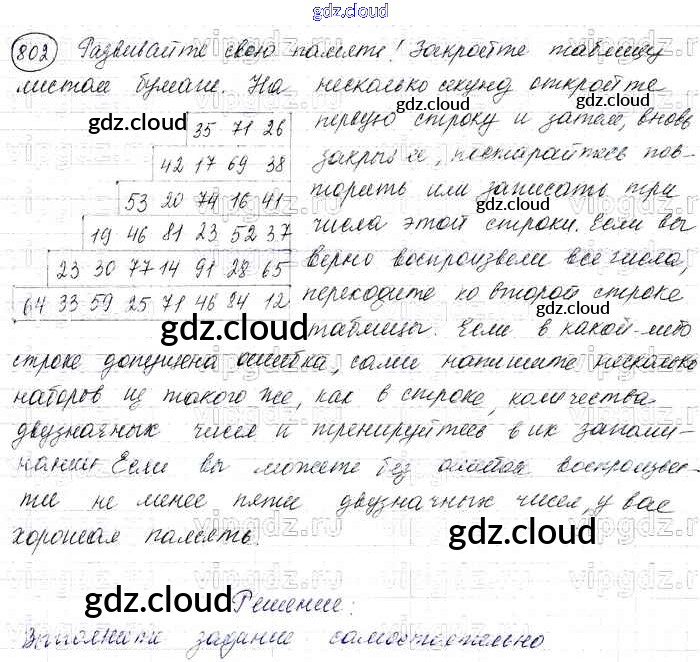 gdz.cloud
802 Развивайте свою память! Закройте таблицу
листом бумаги. На несколько секунд откройте
gdz.cloud
gdz.cloud 35 71 26 первую строку и затем, вновь
gdz.cloud
42 17 69 38 закрыв её, постарайтесь пов-
53 20 74 16 41 торить или записать три
gdz.cloud
19 46 81 23 52 37 числа этой строки. Если вы
23 30 77 14 91 28 65 верно воспроизвели все числа,
64 33 59 25 71 46 84 12 переходите ко второй строке
gdz.cloud
gdz.cloud таблицы. Если в какой-либо
строке допущена ошибка, сами напишите несколько
наборов из такого же, как в строке, количества
двузначных чисел и тренируйтесь в их запоми-
нании. Если вы можете без ошибок воспроизвес-
ти не менее пяти двузначных чисел, у вас
хорошая память.
gdz.cloud
gdz.cloud Решение:
Выполните задание самостоятельно